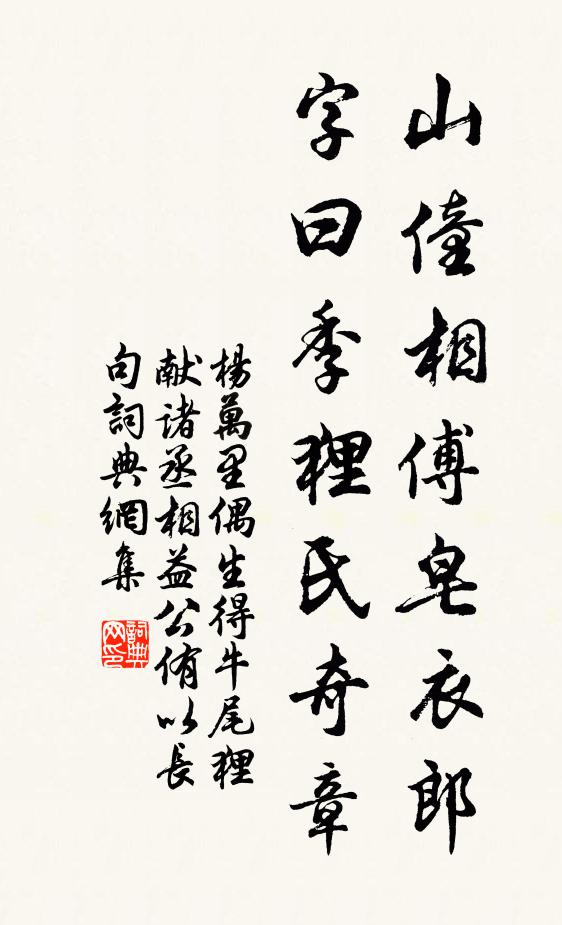 山僮相傅皂衣郎
字曰季貍氏奇章
楊萬里偶生得牛尾貍
献诸丞相益公侑以長
句詞典網集
詞典网印